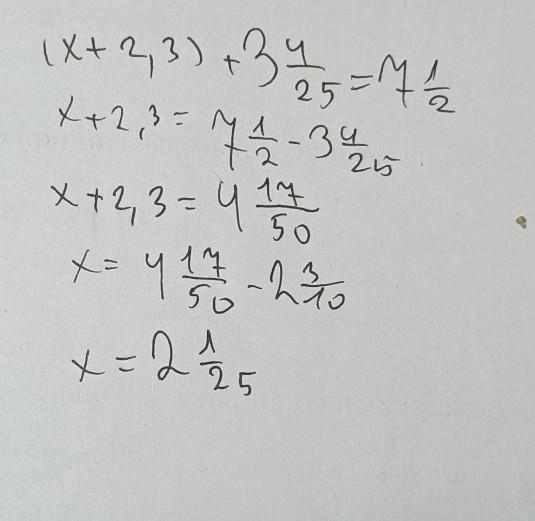 (x+2,3)+3 4/25=7 1/2
x+2,3=7 1/2-3 4/25
x+2,3=4 17/50
x=4 17/50-2 3/10
x=2 1/25